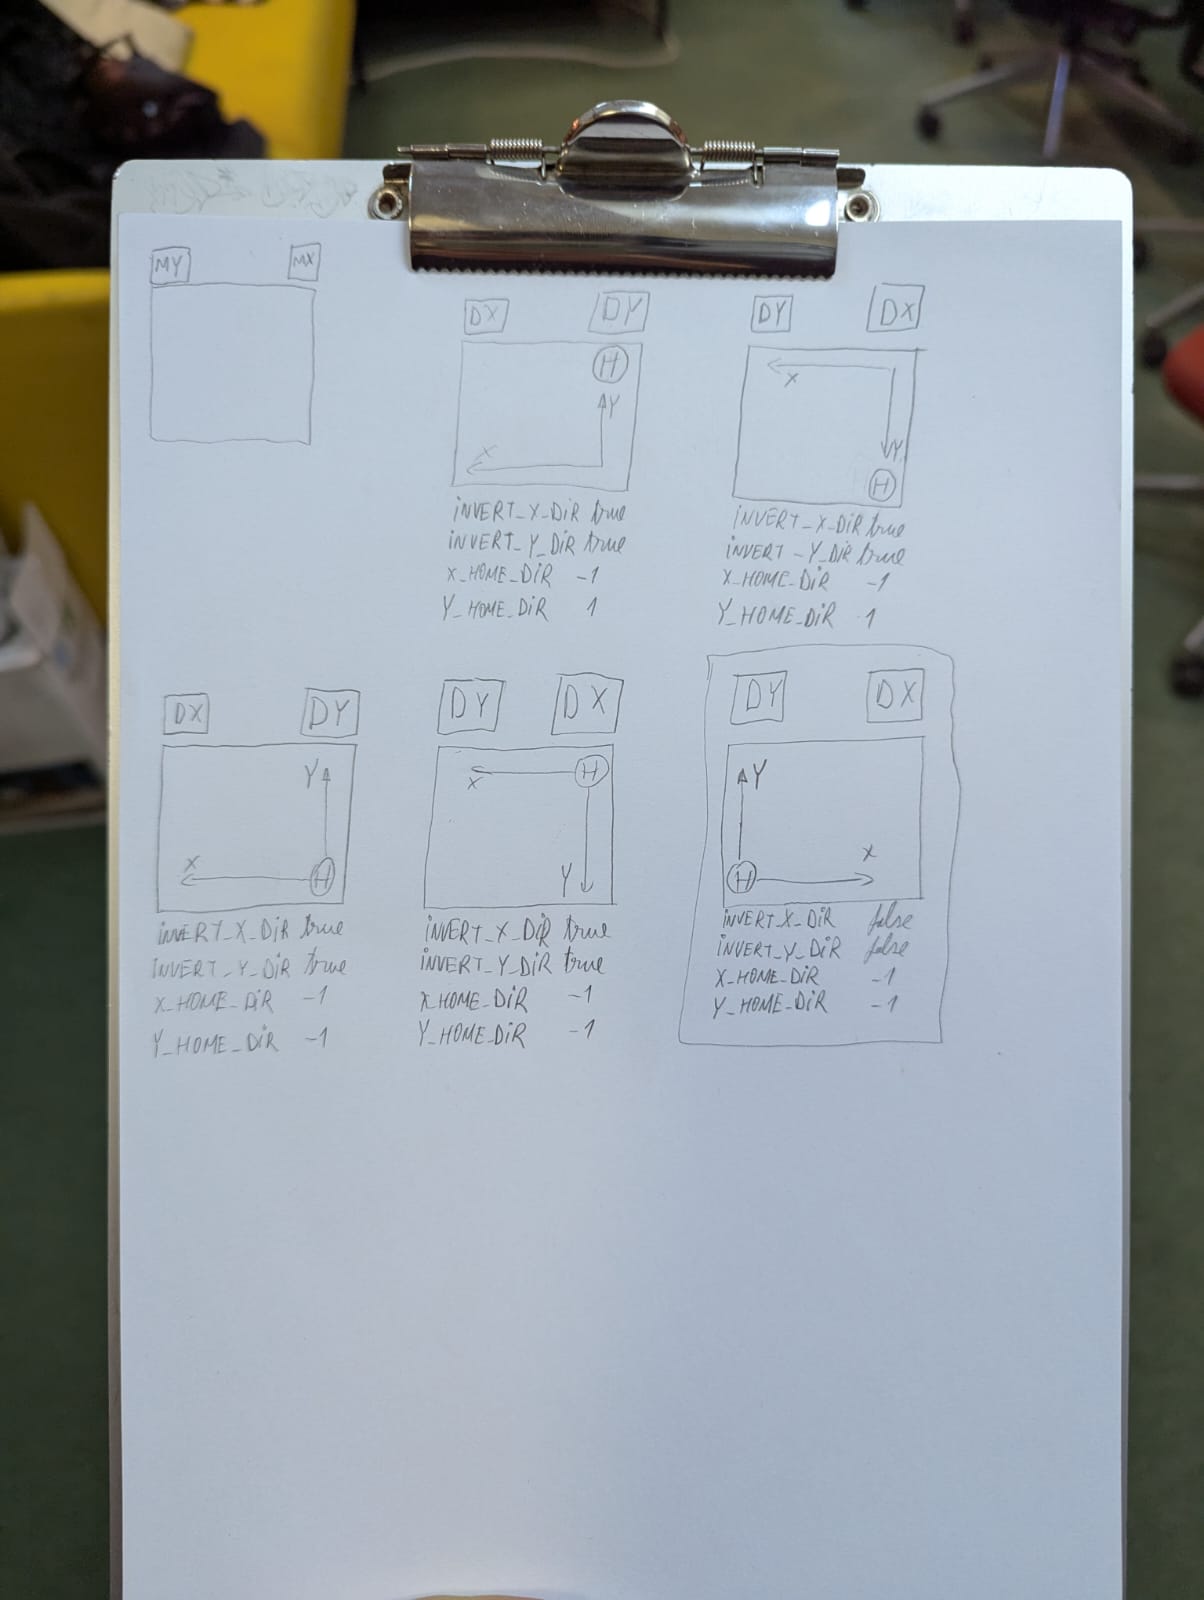 MY MX
DX DY
H
Y
X
INVERT_X_DIR true
INVERT_Y_DIR true
X_HOME_DIR -1
Y_HOME_DIR 1
DY DX
X
Y
H
INVERT_X_DIR true
INVERT_Y_DIR true
X_HOME_DIR -1
Y_HOME_DIR 1
DX DY
Y
X
H
INVERT_X_DIR true
INVERT_Y_DIR true
X_HOME_DIR -1
Y_HOME_DIR -1
DY DX
H
X
Y
INVERT_X_DIR true
INVERT_Y_DIR true
X_HOME_DIR -1
Y_HOME_DIR -1
DY DX
Y
X
H
INVERT_X_DIR false
INVERT_Y_DIR false
X_HOME_DIR -1
Y_HOME_DIR -1